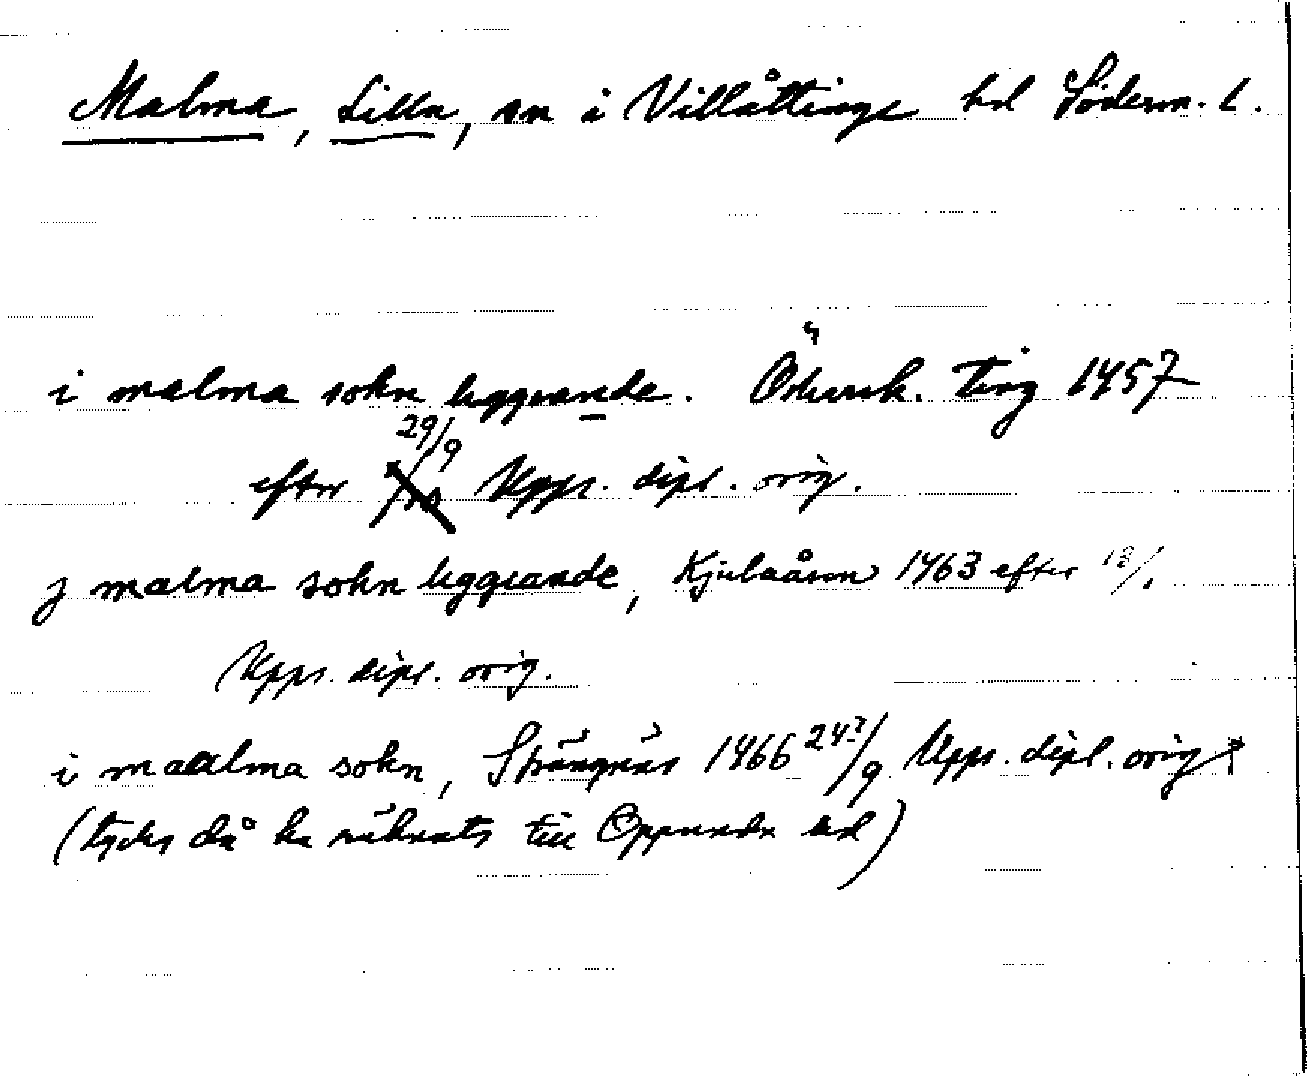 Malma, Lilla, sn i Villåttinge hd Söderm. l.
i malma sokn liggiande. ting 1457
efter 29/9 Upps. dipl. orig.
j malma sokn liggiande, Kjulaåsen 1463 efter 18/1
Upps. dipl. orig.
i maalma sokn, Strängnäs 1466 24?/9 Upps. dipl. orig
(tycks då ha räknats till Oppunda hd)